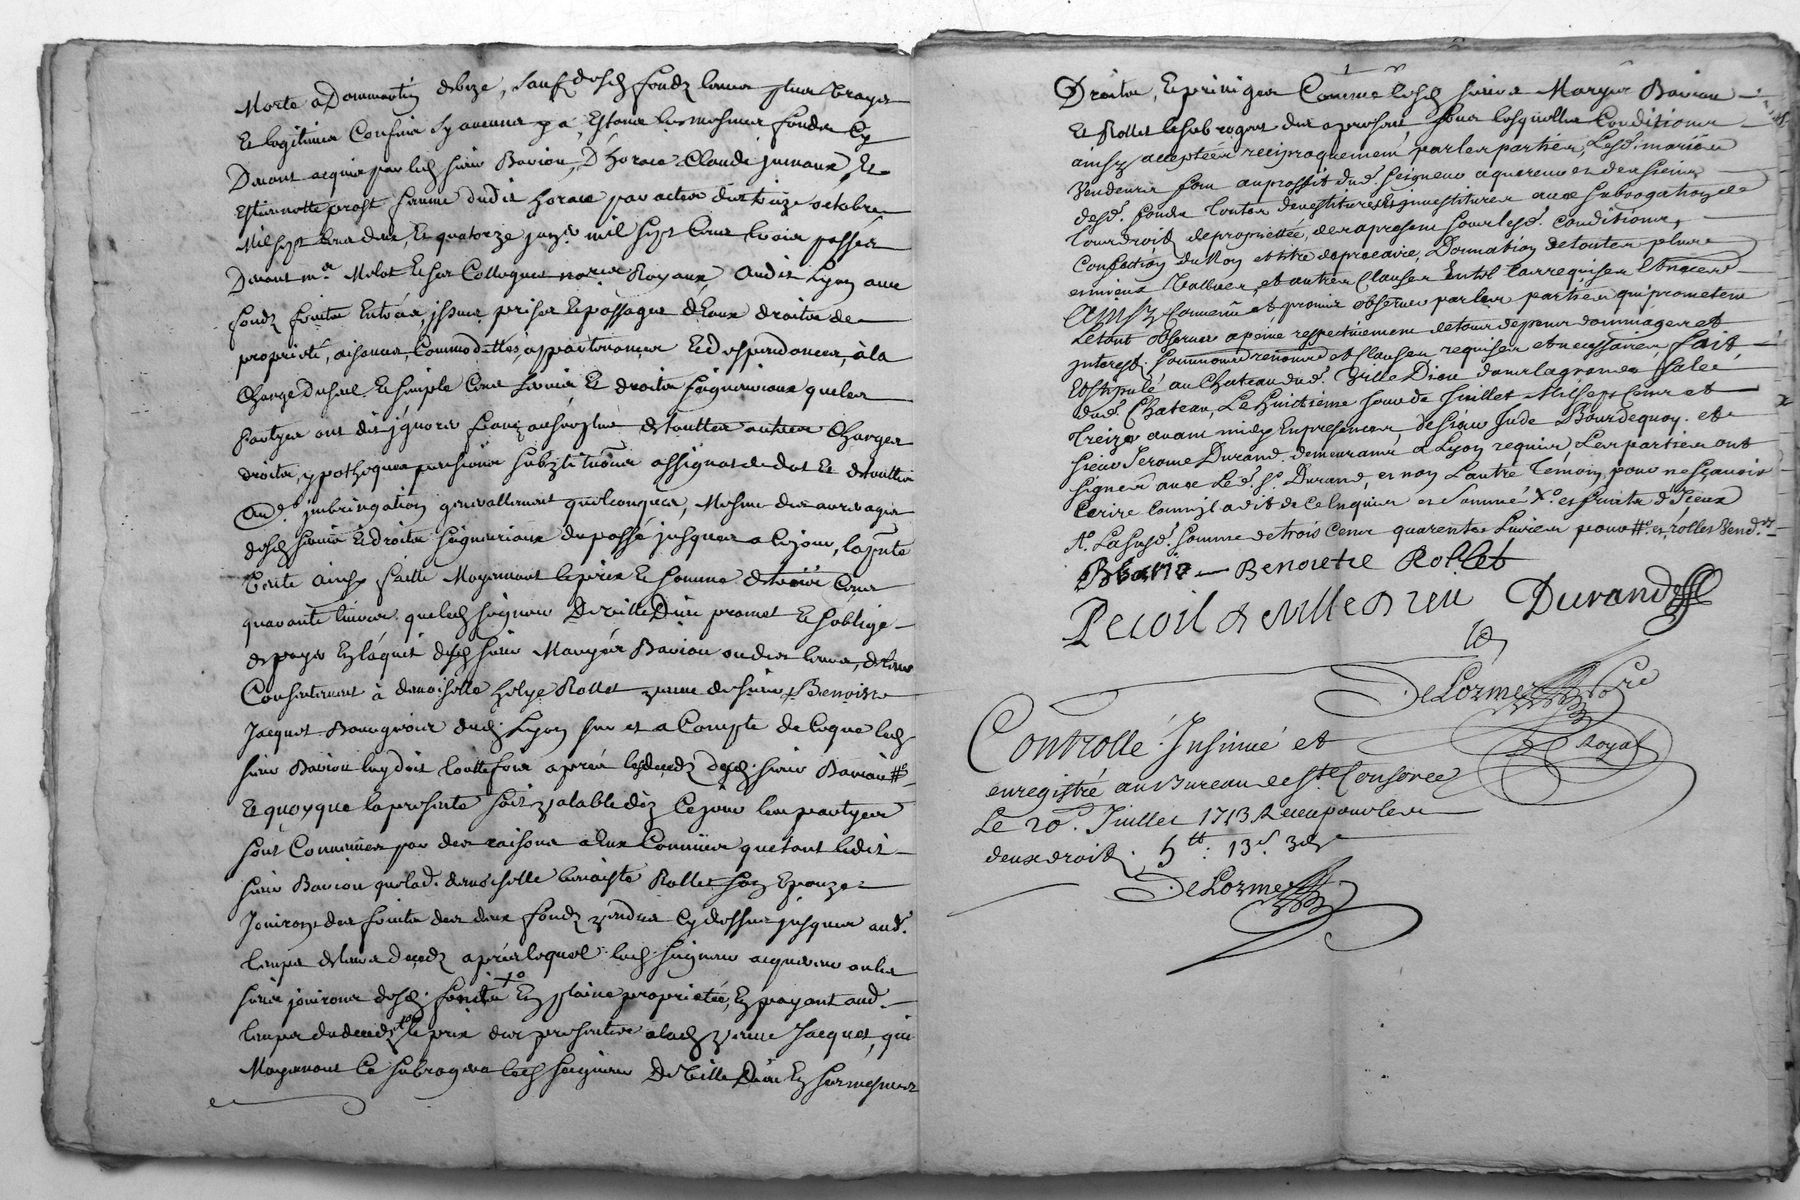 Morte a Dommartin de bize, sauf desd. fondz leurs plus vrayes
Et legitimes Confins sy aucuns y a, Estans les mesmes fondz cy
Devant acquis par led. sieur Bavion, D'horace Claude jumaux, Et
Estiennette prost femme dudit horace par actes des treize octobre
Mil sept cens deux, Et quatorze janv. mil sept cens trois passés
Devant me. Melot Et ses Collegues no.res Royaux Audit Lyon avec
fondz fruitz Entrées, jssues, prises Et passages d'Eaux droitz de
proprieté, aisances, Commodittés appartenances Et despendances, à la
Charge du seul Et simple Cens servis Et droitz seigneuriaux que les
partyes ont dit jgnorer franc au surplus de touttes autres Charges
droitz, ypotheques pensions substitutions assignat de dot Et de touttes
Aud. jmbringation generallement quelconques, Mesme des arrerages
desd. servis Et droitz seigneuriaux du passé jusques a Ce jour, la pnte
Vente ainsy faitte Moyennant le prix Et somme de trois Cens
quarante livres que led. seigneur De ville Dieu promet Et s'oblige
de payer En l'aquit dud. sieur Bavion ou des leurs, de leur
Consentement à demoiselle helye Rollet veuve de sieur Benoist
Jacquet Bourgeois dud. Lyon sur et a Compte de Ce que led.
sieur Bavion luy doit touttefois apres le deceds dud. sieur Bavion #
Et quoyque la presente soit valable dez Ce jour les partyes
sont Convenues par des raisons a Eux Connues que tant ledit
sieur Bavion que lad. demoiselle benoiste Rollet son Epouze
Jouiront des fruitz des deux fondz vendus Cy dessus jusques aud.
temps de leurs decedz apres lequel led. seigneur acquereur ou les
siens jouiront desd. fondz En plaine proprietée, En payant aud.
temps du decedz le prix des presentes a lad. veuve Jacquet, qui
Moyennant Ce subrogera led. seigneur De ville Dieu En ses mesmes
Droitz, Et privileges Comme lesd. sieurs Maryés Bavion
Et Rollet le subrogent des a present, sous lesquelles Conditions
ainsy acceptées reciproquement par les parties, Lesd. mariés
Vendeurs font au proffit dud. Seigneur aquereur et des siens
desd. fondz toutes devestitures & jnvestitures avec subrogation de
leur droit de proprietée, des a present sous lesd. conditions,
Confection du Nom et titre de precaire, Donnation de toutes plus
et mieux Vallues, et autres Clauses En tel cas requises Et necess.
Ainsy Convenu et promis observer par les parties qui promettent
Le tout observer a peine respectivement de tous depens dommages et
jnterest, soumissions renons. et Clauses requises et necessaires, fait
Et Stipulé au Chateau dud. Ville Dieu dans la grande Salle
dud. Chateau, Le huictieme Jour de Juillet Mil Sept Cens et
Treize avant midy En presence de Sieur Jude Bourdequoy. et
Sieur Jerome Durand. demeurant a Lyon requis, Les parties ont
signées avec Led. Sr. Durand, et non Lautre Temoin, pour ne sçavoir
Ecrire comm'jl a dit de Ce Enquis et sommé
La susd. somme de trois Cens quarente Livres
Bbavio Benoiste Rollet
Pecoil de ville Dieu Durand
DeLorme No.re
Royal
Controllé Jnsinué et
enregistré au Bureau de Ste. Consorce
Le 20e. Juillet 1713 Receu pour les
deux droits. 5tt: 13s. 3d
DeLorme